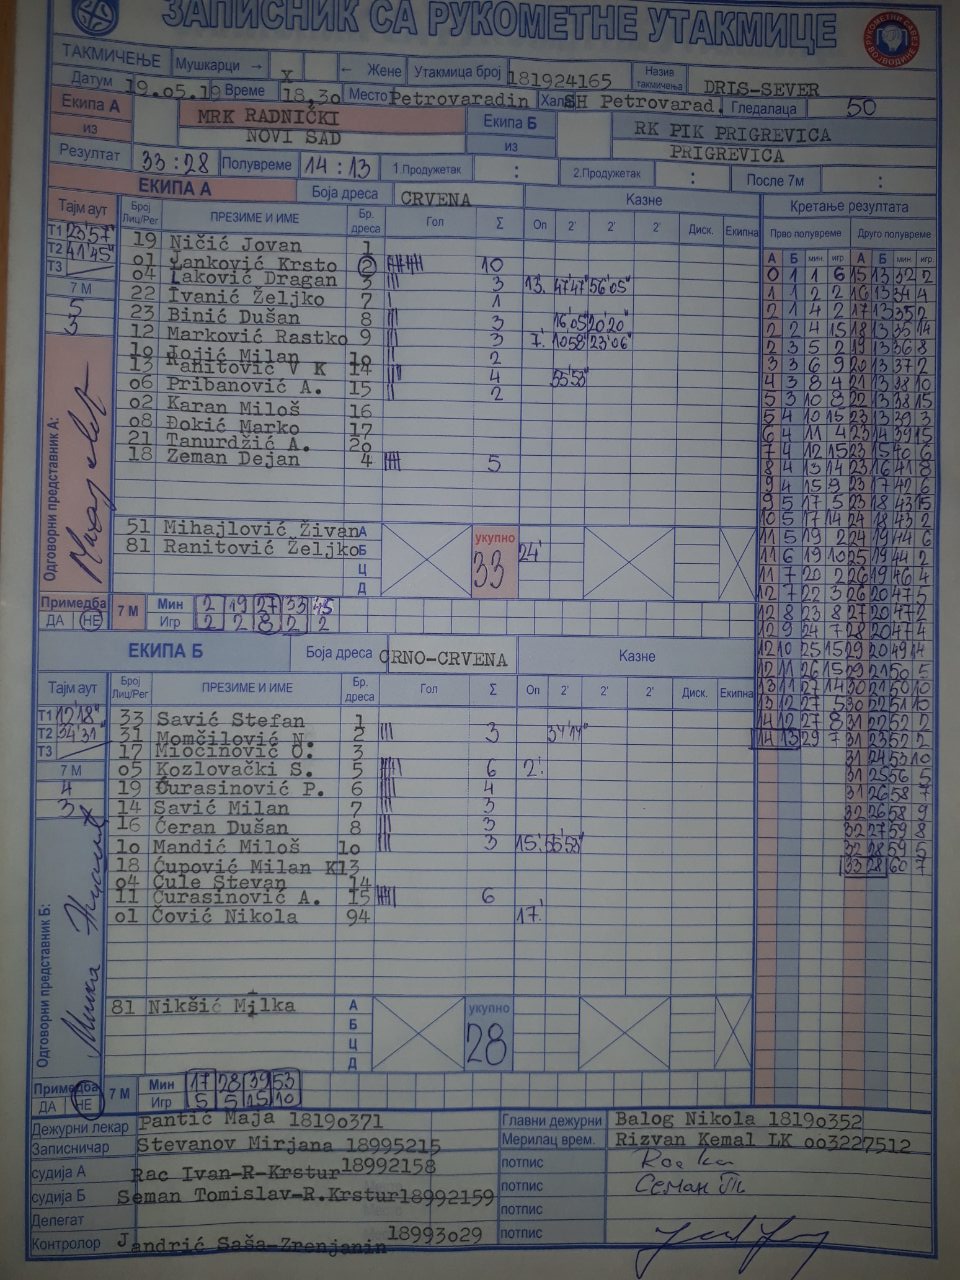 ЗАПИСНИК СА РУКОМЕТНЕ УТАКМИЦЕ
ТАКМИЧЕЊЕ Мушкарци → X ← Жене Утакмица број 181924165 Назив такмичења DRIS-SEVER
Датум 19.05.19 Време 18,30 Место Petrovaradin Хала SH Petrovarad. Гледалаца 50
Екипа А MRK RADNIČKI Екипа Б RK PIK PRIGREVICA
из NOVI SAD из PRIGREVICA
Резултат 33:28 Полувреме 14:13 1.Продужетак : 2.Продужетак : После 7м :
ЕКИПА А Боја дреса CRVENA Казне Кретање резултата
Тајм аут Број Лиц/Рег ПРЕЗИМЕ И ИМЕ Бр. дреса Гол Σ Оп 2' 2' 2' Диск. Екипна Прво полувреме Друго полувреме
Т1 23'57"
Т2 41'45"
Т3
7 М
5
3
19 Ničić Jovan 1
01 Janković Krsto 2 10
04 Laković Dragan 3 3 13. 47'47" 56'05"
22 Ivanić Željko 7 1
23 Binić Dušan 8 3 16'05" 20'20"
12 Marković Rastko 9 3 7. 10'58" 23'06"
10 Jojić Milan 10 2
13 Ranitović V K 14 4 55'53"
06 Pribanović A. 15 2
02 Karan Miloš 16
08 Đokić Marko 17
21 Tanurdžić A. 20
18 Zeman Dejan 4 5
51 Mihajlović Živan А
81 Ranitović Željko Б 24'
Ц
Д
укупно 33
Одговорни представник А:
Примедба ДА НЕ
7 М Мин 2 19 27 33 45
Игр 2 2 8 2 2
А Б мин. игр. А Б мин. игр.
0 1 1 6 15 13 32 2
1 1 2 2 16 13 34 4
2 1 4 2 17 13 35 2
2 2 4 15 18 13 35 14
2 3 5 2 19 13 36 8
3 3 6 9 20 13 37 2
4 3 8 4 21 13 38 10
5 3 10 8 22 13 38 15
5 4 10 15 23 13 39 3
6 4 11 4 23 14 39 15
7 4 12 15 23 15 40 6
8 4 13 14 23 16 41 8
9 4 15 9 23 17 42 6
9 5 17 5 23 18 43 15
10 5 17 14 24 18 43 2
11 5 19 2 24 19 44 6
11 6 19 10 25 19 44 2
11 7 20 2 26 19 46 4
12 7 22 3 26 20 47 5
12 8 23 8 27 20 47 2
12 9 24 7 28 20 47 4
12 10 25 15 29 20 49 14
12 11 26 15 29 21 50 5
13 11 27 14 30 21 50 10
13 12 27 5 30 22 51 10
14 12 27 8 31 22 52 2
14 13 29 7 31 23 52 2
31 24 53 10
31 25 56 5
31 26 58 7
32 26 58 9
32 27 59 8
32 28 59 5
33 28 60 7
ЕКИПА Б Боја дреса CRNO-CRVENA Казне
Тајм аут Број Лиц/Рег ПРЕЗИМЕ И ИМЕ Бр. дреса Гол Σ Оп 2' 2' 2' Диск. Екипна
Т1 12'18"
Т2 34'31"
Т3
7 М
4
3
33 Savić Stefan 1
31 Momčilović N. 2 3 34'14"
17 Miočinović O. 3
05 Kozlovački S. 5 6 2'.
19 Đurasinović P. 6 4
14 Savić Milan 7 3
16 Ćeran Dušan 8 3
10 Mandić Miloš 10 3 15'. 55'53"
18 Ćupović Milan K 13
04 Čule Stevan 14
11 Ćurasinović A. 15 6
01 Čović Nikola 94 17'.
81 Nikšić Milka А
Б
Ц
Д
укупно 28
Одговорни представник Б:
Примедба ДА НЕ
7 М Мин 17 28 39 53
Игр 5 5 15 10
Дежурни лекар Pantić Maja 18190371 Главни дежурни Balog Nikola 18190352
Записничар Stevanov Mirjana 18995215 Мерилац врем. Rizvan Kemal LK 003227512
судија А Rac Ivan-R-Krstur 18992158 потпис
судија Б Seman Tomislav-R.Krstur 18992159 потпис Семан Т
Делегат потпис
Контролор Jandrić Saša-Zrenjanin 18993029 потпис